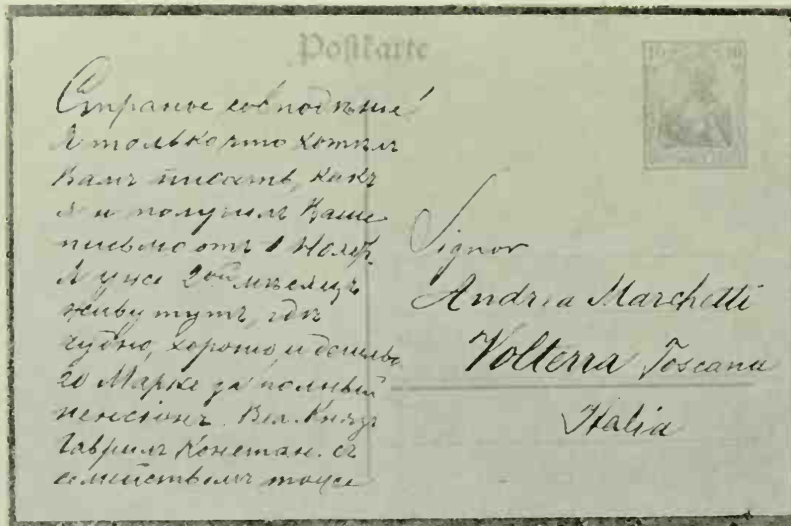 Postkarte
10 10
Странное совподѣние!
Я только что хотѣлъ
Вамъ писать, какъ
я и получилъ Ваше
письмо отъ 1 Нояб.
Я уже 2ой мѣсяцъ
живу тутъ, гдѣ
чудно, хорошо и дешево
20 Марке за полный
пенсіонъ. Вел. Князь
Гаврилъ Констан. съ
семействомъ тоже
Signor
Andrea Marchetti
Volterra Toscana
Italia